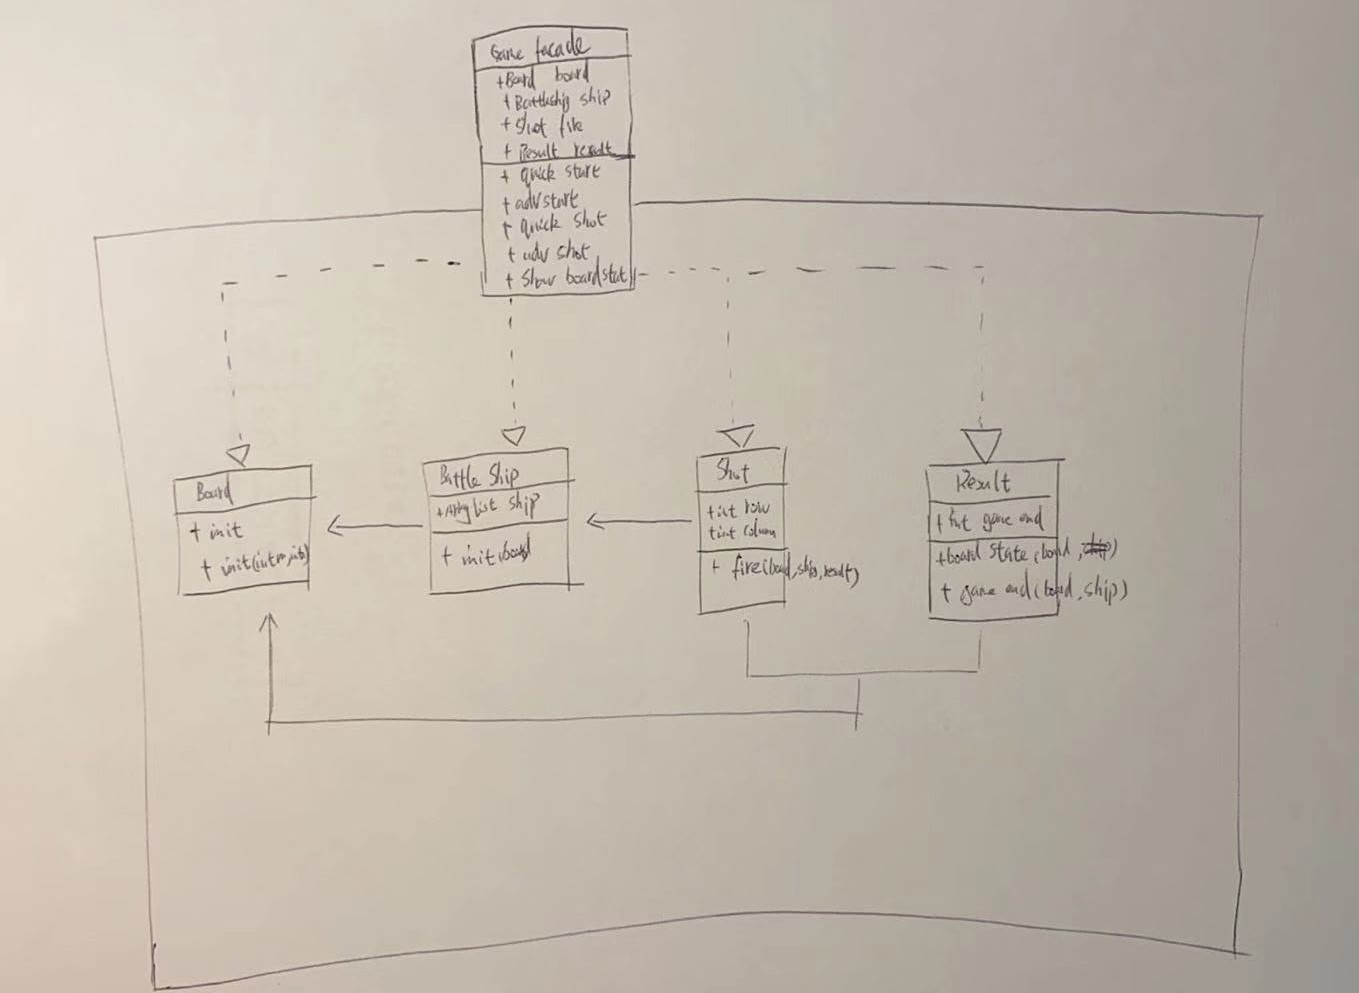 Game facade
+Board board
+ Battleship ship
+ Shot fire
+ Result result
+ quick start
+ advstart
+ quick shot
+ adv shot
+ Show boardstat
Board
+ init
+ init(int m, int n)
Battle Ship
+ArrayList ship
+ init(board)
Shot
+int row
+int column
+ fire(board, ship, result)
Result
+ int game end
+board state (board, ship)
+ game end (board, ship)